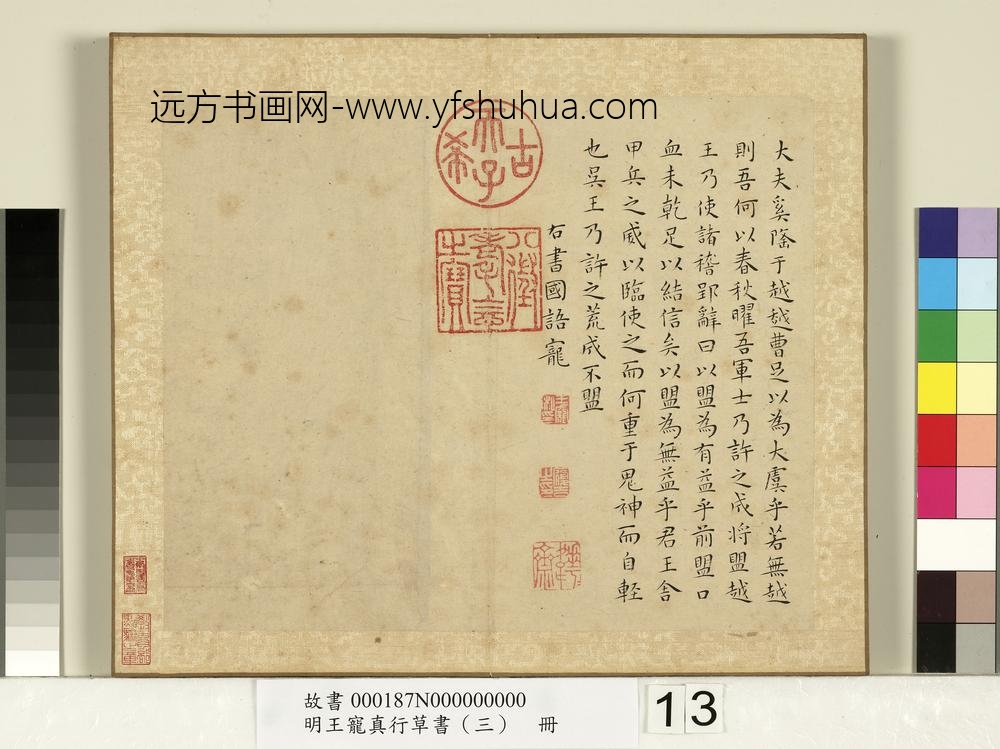 远方书画网-www.yfshuhua.com
大夫奚隆于越越曹足以為大虞乎若無越
則吾何以春秋曜吾軍士乃許之成將盟越
王乃使諸稽郢辭曰以盟為有益乎前盟口
血未乾足以結信矣以盟為無益乎君王舍
甲兵之威以臨使之而何重于鬼神而自輕
也吳王乃許之荒成不盟
右書國語寵
古希天子
八徵耄念之寶
故書 000187N000000000
明王寵真行草書（三） 冊
13